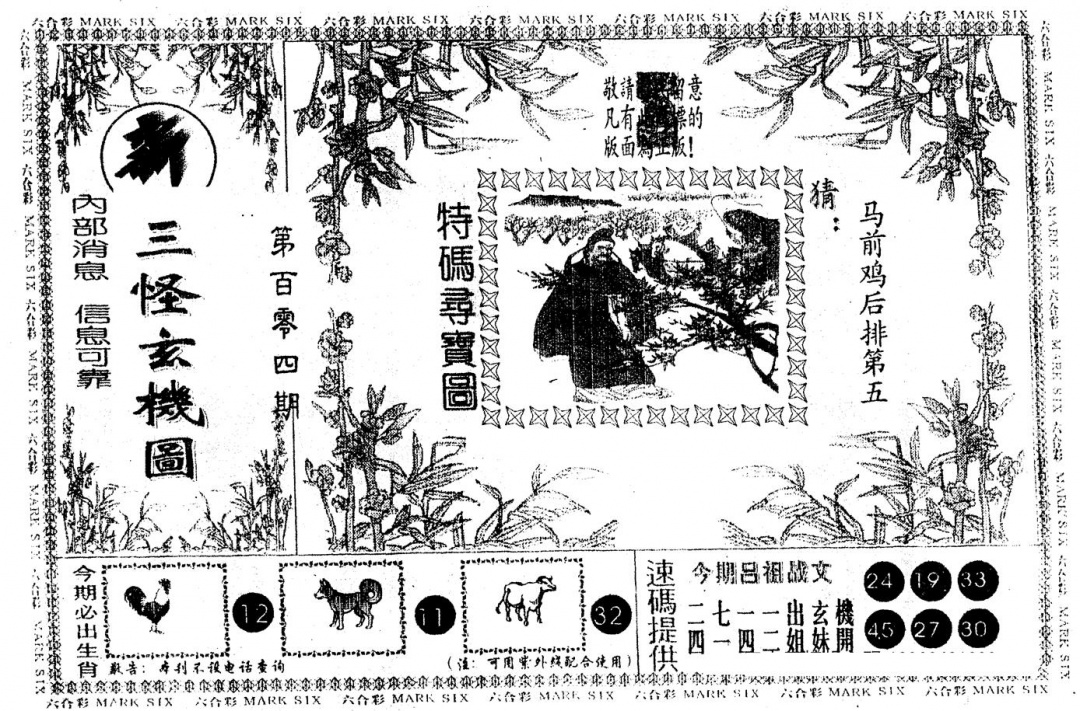 六合彩 MARK SIX 六合彩 MARK SIX 六合彩 MARK SIX 六合彩 MARK SIX 六合彩 MARK SIX 六合彩 MARK SIX 六合彩 MARK SIX
新
內部消息 信息可靠
三怪玄機圖
第百零四期
敬請 留意
凡有 標的
版面為正版!
特碼尋寶圖
猜:
马前鸡后排第五
今期必出生肖
12
11
32
敬告: 本刊不设电话查询
(注: 可用紫外线配合使用)
速碼提供
今期吕祖战文
二七一一出玄機
四一四二姐妹開
24 19 33
45 27 30
六合彩 MARK SIX 六合彩 MARK SIX 六合彩 MARK SIX 六合彩 MARK SIX 六合彩 MARK SIX 六合彩 MARK SIX 六合彩 MARK SIX